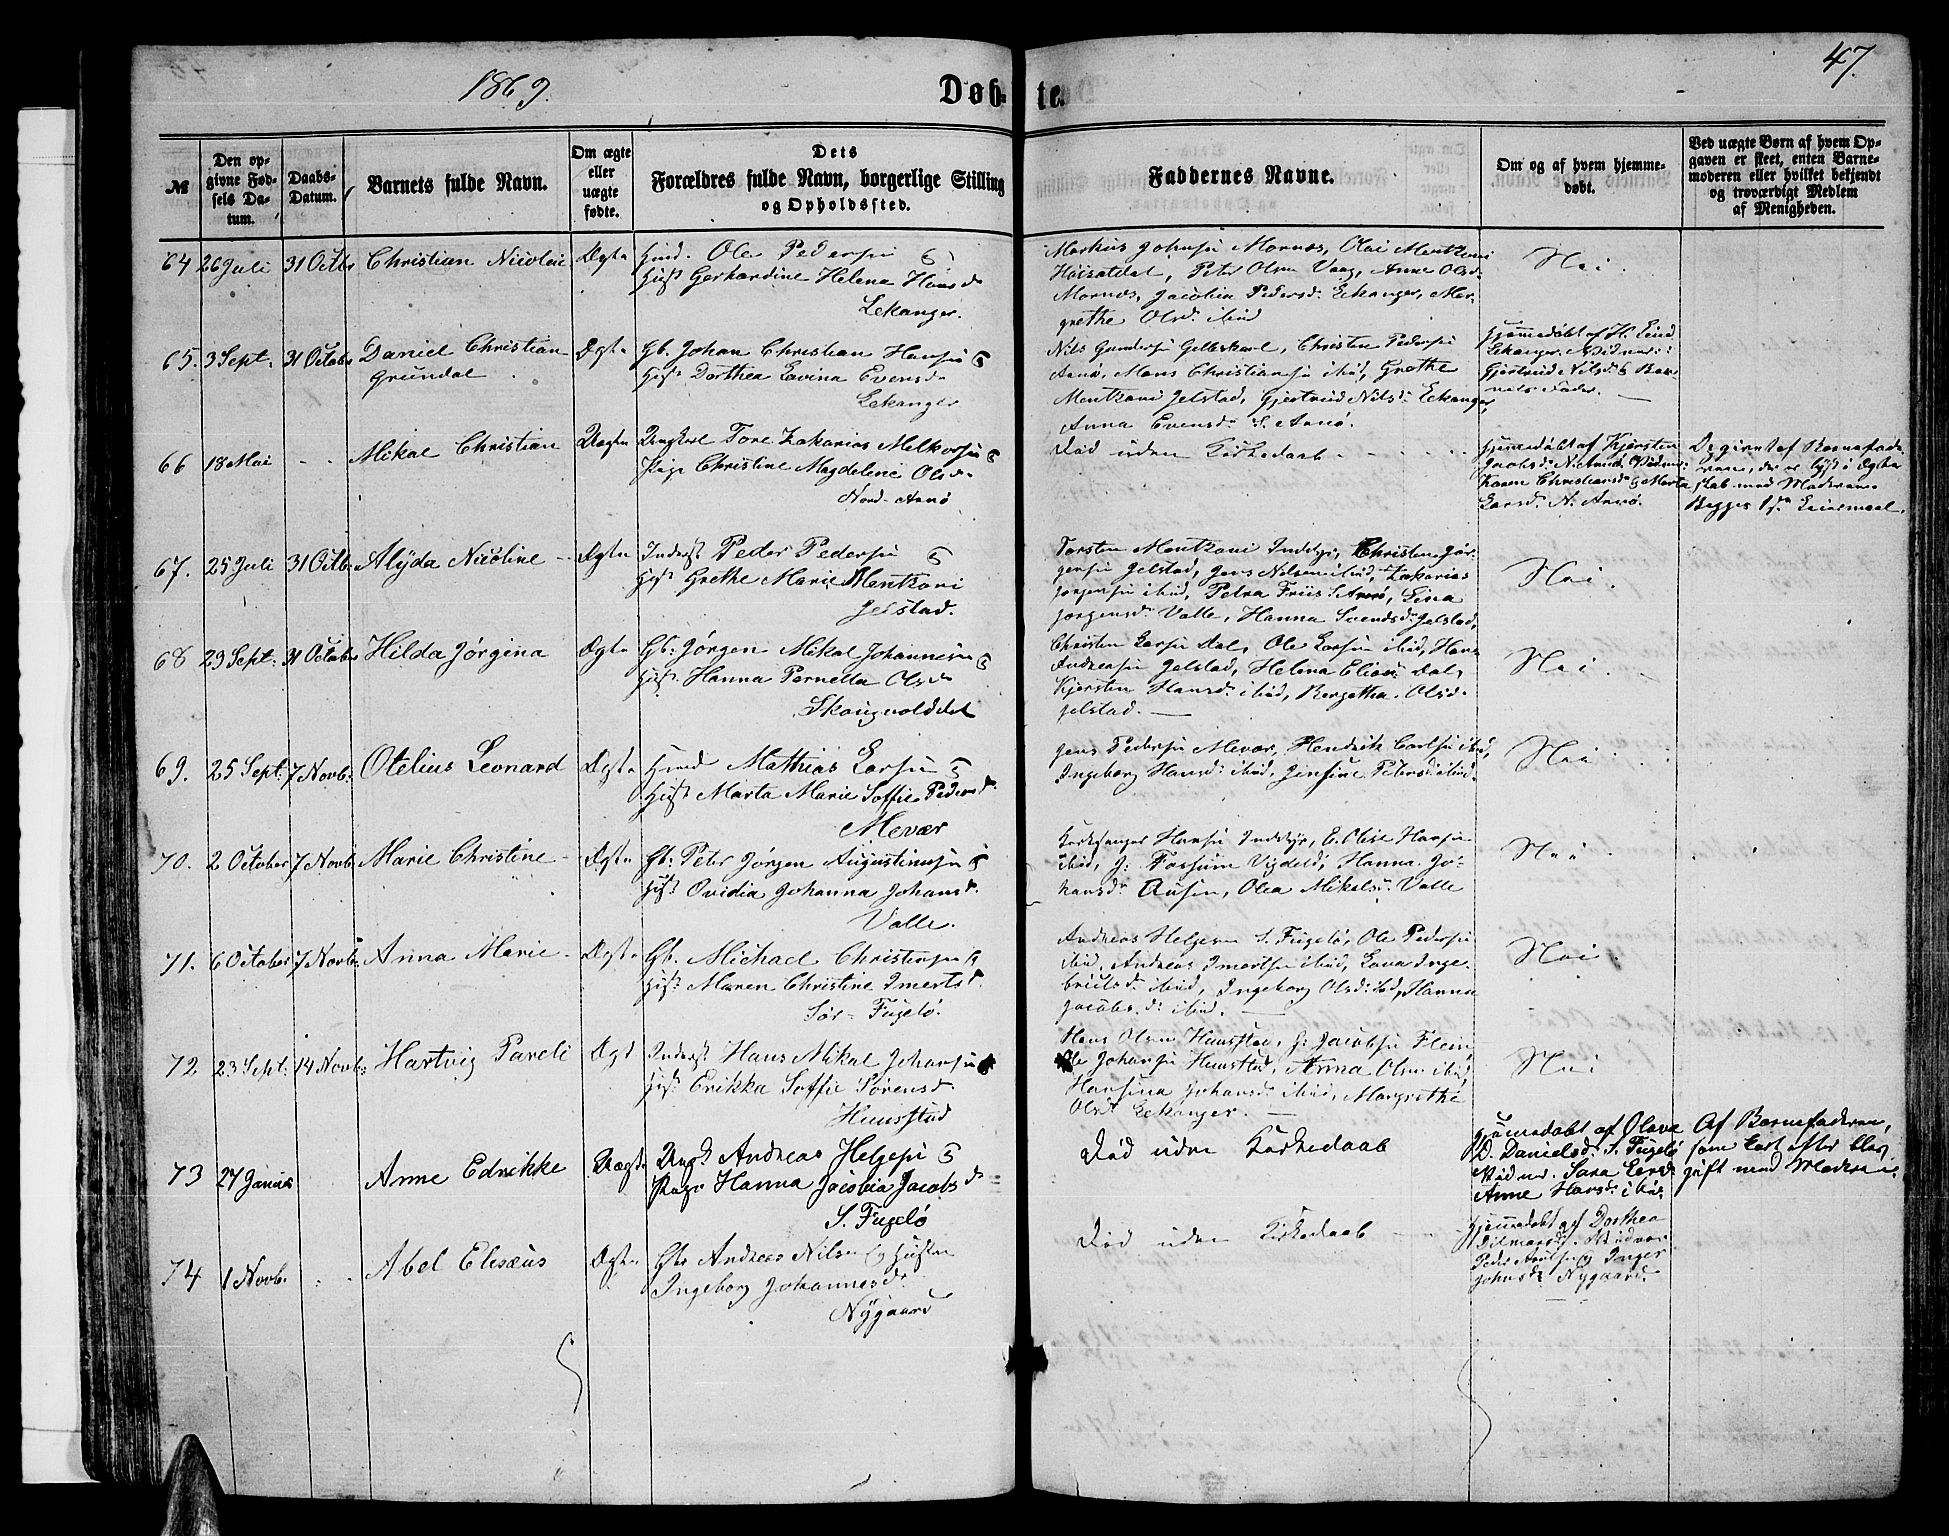 1869.
Døb-
te.
47.
№
Den op-
givne Fød-
sels Da-
tum.
Daabs-
Datum.
Barnets fulde Navn.
Om ægte
eller
uægte
fødte.
Dets
Forældres fulde Navn, borgerlige Stilling
og Opholdssted.
Faddernes Navne.
Om og af hvem hjemme-
døbt.
Ved uægte Børn af hvem Op-
gaven er skeet, enten Barne-
moderen eller hvilket bekjendt
og troværdigt Medlem
af Menigheden.
64 26 Juli 31 Octbr Christian Nicolai Ægte
Ole Pedersen
Hust Gerhardine Helena Hansd
Lekanger.
Markus Johnsen Mornæs, Olai Mentzoni
Peter Olsen Vaag, Anne Olsd
Mornæs, Jacobia Pedersd: Lekanger, Mar-
grethe Olsd: ibid
Nei.
65. 3 Sept. 31 Octobr Daniel Christian
Grundal
Ægte
Gb. Johan Christian Hansen
Hust Dorthea Lovina Evensd
Lekanger
Nils Gundersen Christen Pedersen
Arnø, Mons Christiansen ibid, Grethe
Mentzoni Jelstad, Gjertrud Nilsd: Lekanger,
Anna Evensd: S. Arnø.
Hjemmedøbt af
Lekanger.
Gjertrud Nilsd: Bar-
nets Fader.
66 18 Mai - - Mikal Christian Uægte
Ungkarl Tore Zakarias Melkorsen
Pige Christine Magdelene Olsd
Nord-Arnø
Død uden Kirkedaab
Hjemmedøbt af Kjersten
Jacobsd: N. Arnø.
Karen Christiansd: Marta
Larsd: N. Arnø.
Begivet af Barnefade-
ren, der er lyst i Ægte-
skab med Moderen.
Begges 1ste Leiermaal.
67. 25 Juli 31 Octb Alyda Nicoline - Ægte
Inderst Peder Pedersen
Hust Grethe Marie Mentzoni
Jelstad.
Torsten Mentzoni Christen Jør-
gensen Jelstad, Jens Nilsen ibid, Zakarias
Jørgensen ibid, Petra Friis S. Arnø, Lina
Jørgensd: Valle, Hanna Svendsd: Jelstad,
Nei.
68 29 Sept: 31 Octobr Hilda Jørgina Ægte
Gb: Jørgen Mikal Johannesen
Hust Hanna Pernella Olsd
Christen Larsen Dal, Ole Larsen ibid, Hans
Andreasen Jelstad, Helena Dal,
Kjersten Hansd: ibid, Bergetha Olsd.
Jelstad.
Nei.
69. 25 Sept. 7 Novb: Otelius Leonard Ægte
Mathias Larsen
Hust Marta Marie Soffie Pedersd
Mevær
Jens Pedersen Mevær, Hendrik Carlsen ibid,
Ingeborg Hansd: ibid, Jensine Petersd: ibid.
Nei.
70. 2 October 7 Novb. Marie Christine - Ægte
Gb: Peter Jørgen Augustinusen
Hust Ovidia Johanna Johansd.
Valle.
Kirkesanger Hansen E. Olise Hansen
ibid, J: Forsum Hanna Jo-
hansd: Ausen, Olea Mikalsd: Valle
Nei.
71. 6 October 7 Novb. Anna Marie - Ægte
Gb. Michael Christensen
Hust Maren Christine Imertsd.
Sør-Fugelø.
Andreas Helgesen S. Fugelø, Ole Pedersen
ibid, Andreas Imertsen ibid, Lava Inge-
brütsd: ibid, Ingeborg Olsd: ibid, Hanna
Jacobsd: ibid.
Nei.
72 23 Sept. 14 Novb: Hartvig Pareli Ægte
Inderst Hans Mikal Johansen
Hust Erikka Soffie Sørensd
Hunstad
Hans Olsen Hunstad, Jacobsen
Ole Johansen Hunstad, Anna Olsen ibid,
Hansina Johansd: ibid, Margrethe
Olsd: Lekanger.
Nei
73 27 Januar Anne Edrikke Uægte
Ungk. Andreas Helgesen
Pige Hanna Jacobia Jacobsd
S. Fugelø
Død uden Kirkedaab
Hjemmedøbt af Olava
D. Danielsd: S. Fugelø
Vidner: Sara Larsd
Anne Hansd: ibid.
Af Barnefaderen,
som kort efter blev
gift med Moderen.
74 1 Novb. - - Abel Elisæus Ægte
Gb. Andreas Nilsen og Hustru
Ingeborg Johannesd.
Nygaard
Død uden Kirkedaab
Hjemmedøbt af Dorthea
Peder og Inger
Johnsd: Nygaard.